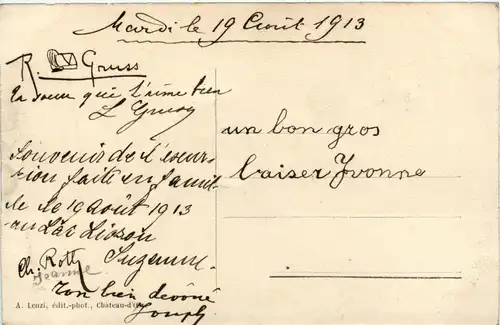 Mardi le 19 Août 1913
R. Gruss
Ta soeur que t'aime bien
L Gruss
un bon gros
baiser Yvonne
Souvenir de l'excur-
sion faite en famil-
le le 19 août 1913
au Lac Lioson
Suzanne.
Ch. Roth
Jeanne
Ton bien dévoué
Joseph
A. Lenzi, édit.-phot., Château-d'Oex